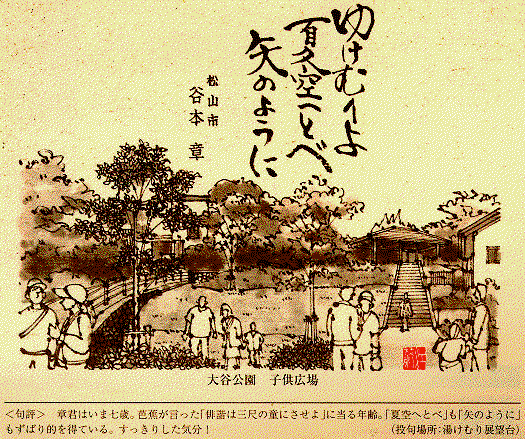 ゆけむりよ
夏空へとべ
矢のように
松山市
谷本 章
大谷公園 子供広場
＜句評＞ 章君はいま七歳。芭蕉が言った「俳諧は三尺の童にさせよ」に当る年齢。「夏空へとべ」も「矢のように」
もずばり的を得ている。すっきりした気分！ (投句場所：湯けむり展望台)